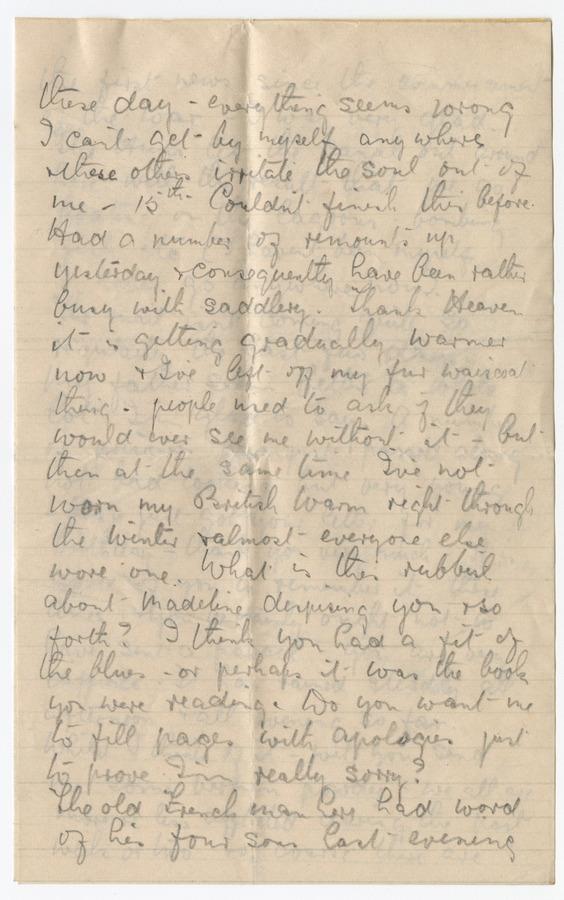 these day - everything seems wrong
I can't get by myself anywhere
& these others irritate the soul out of
me - 15th. Couldn't finish this before.
Had a number of remounts up
yesterday & consequently have been rather
busy with saddlery. Thank Heaven
it is getting gradually warmer
now & I've left off my fur waistcoat
thing - people used to ask if they
would ever see me without it - but
then at the same time I've not
worn my British Warm right through
the winter & almost everyone else
wore one. What is this rubbish
about Madeline despising you & so
forth? I think you had a fit of
the blues - or perhaps it was the book
you were reading. Do you want me
to fill pages with apologies just
to prove I'm really sorry?
The old French man here had word
of his four sons last evening